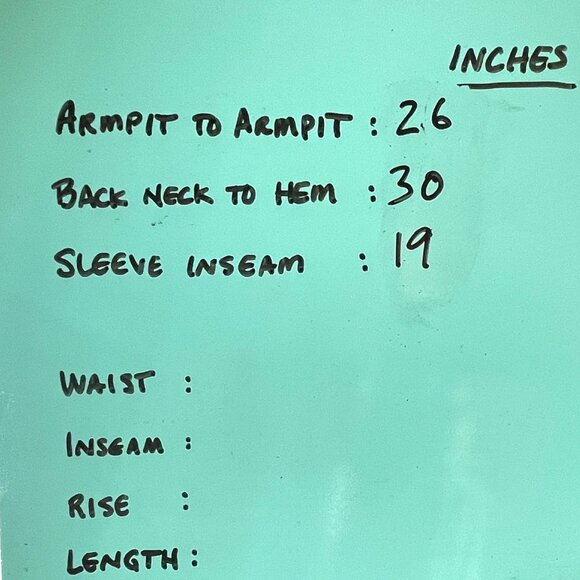 INCHES
ARMPIT TO ARMPIT : 26
BACK NECK TO HEM : 30
SLEEVE INSEAM : 19
WAIST :
INSEAM :
RISE :
LENGTH :